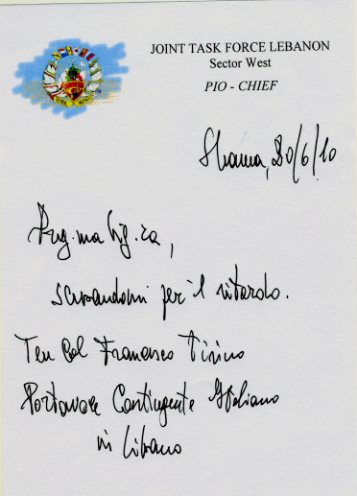 JOINT TASK FORCE LEBANON
Sector West
PIO - CHIEF
Shama, 20/6/10
Preg.ma Sig.ra,
scusandomi per il ritardo.
Ten Col Francesco Tirino
Portavoce Contingente Italiano
in Libano